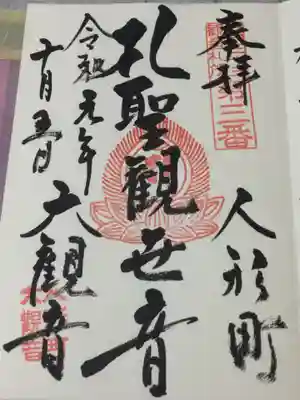 奉拝
第三番
人形町
聖観世音
大観音
令和元年
十月五日